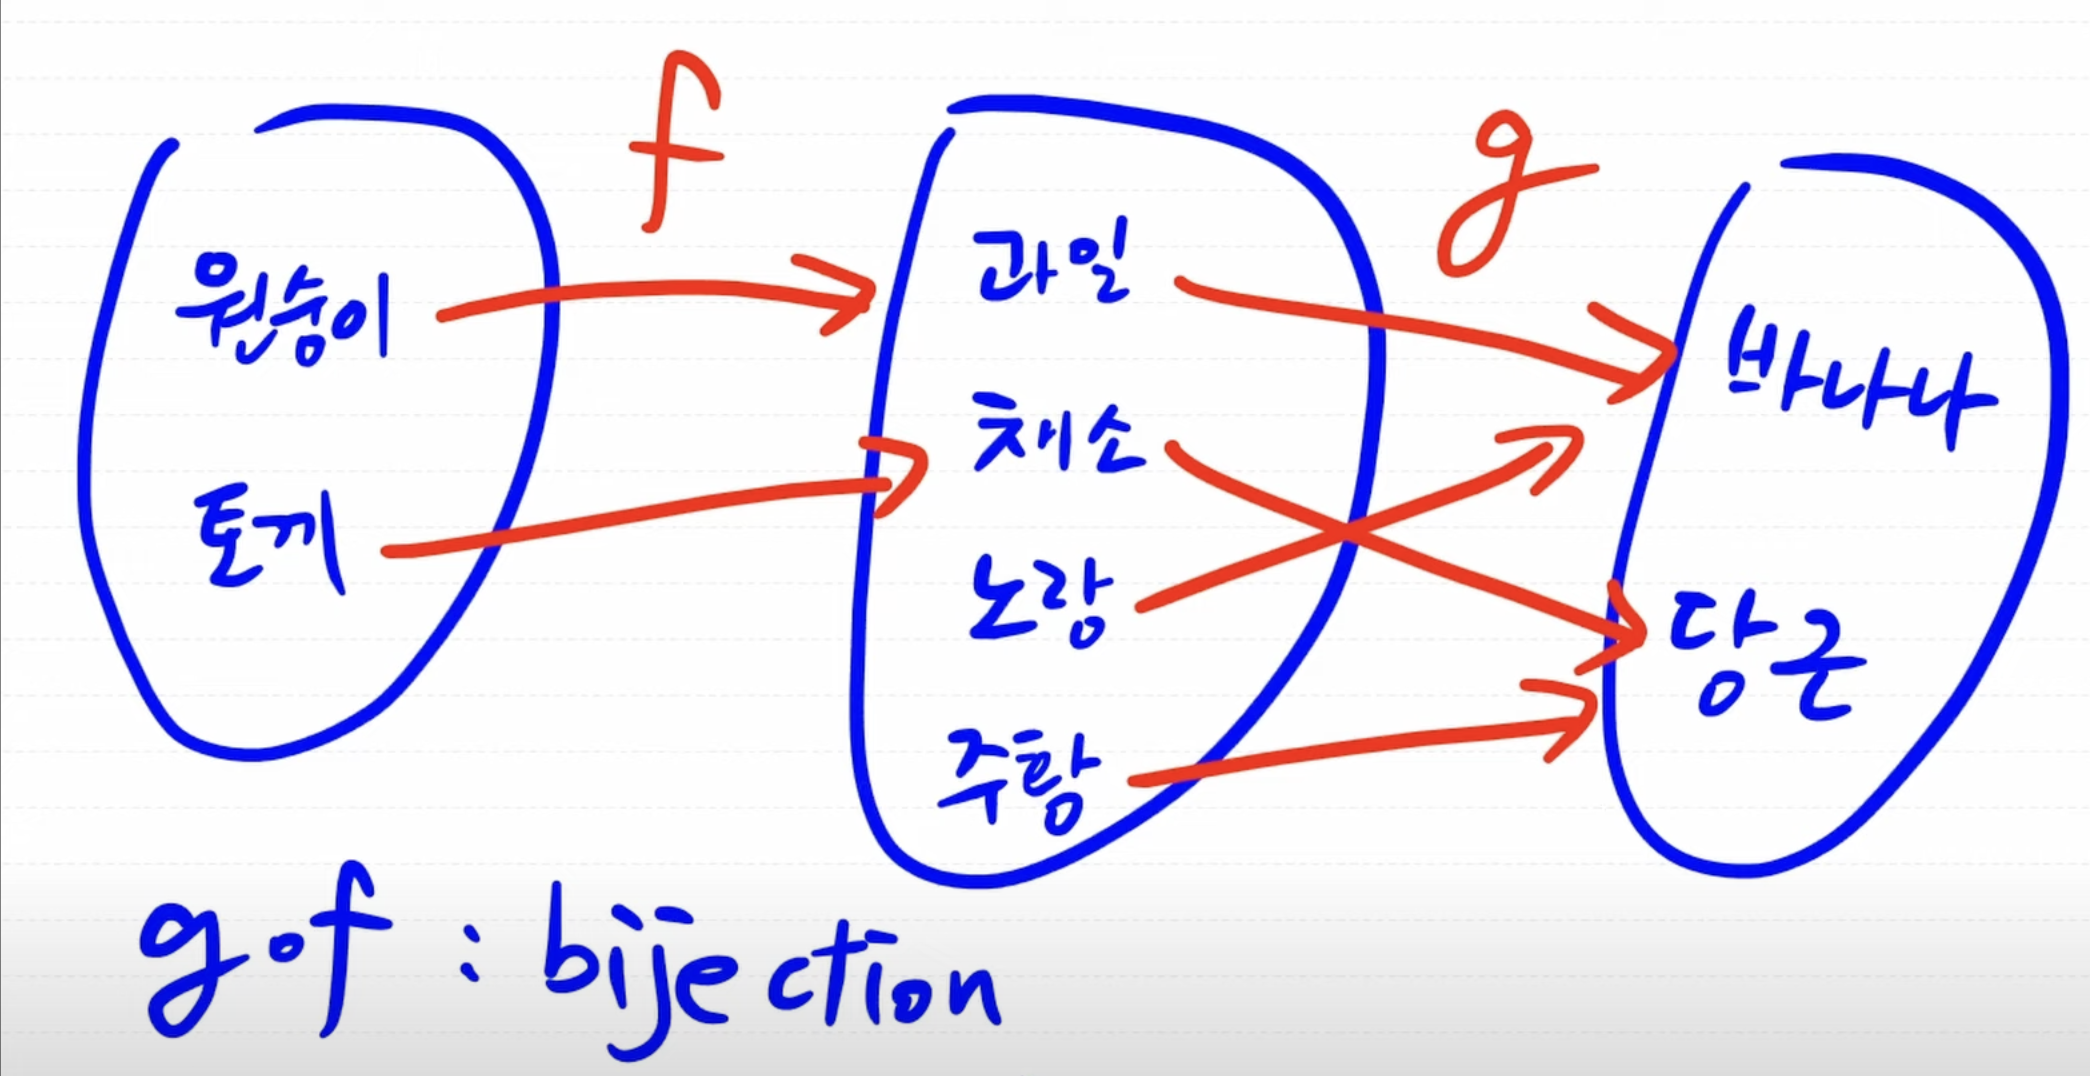 f
g
원숭이
토끼
과일
채소
노랑
주황
바나나
당근
g∘f : bijection